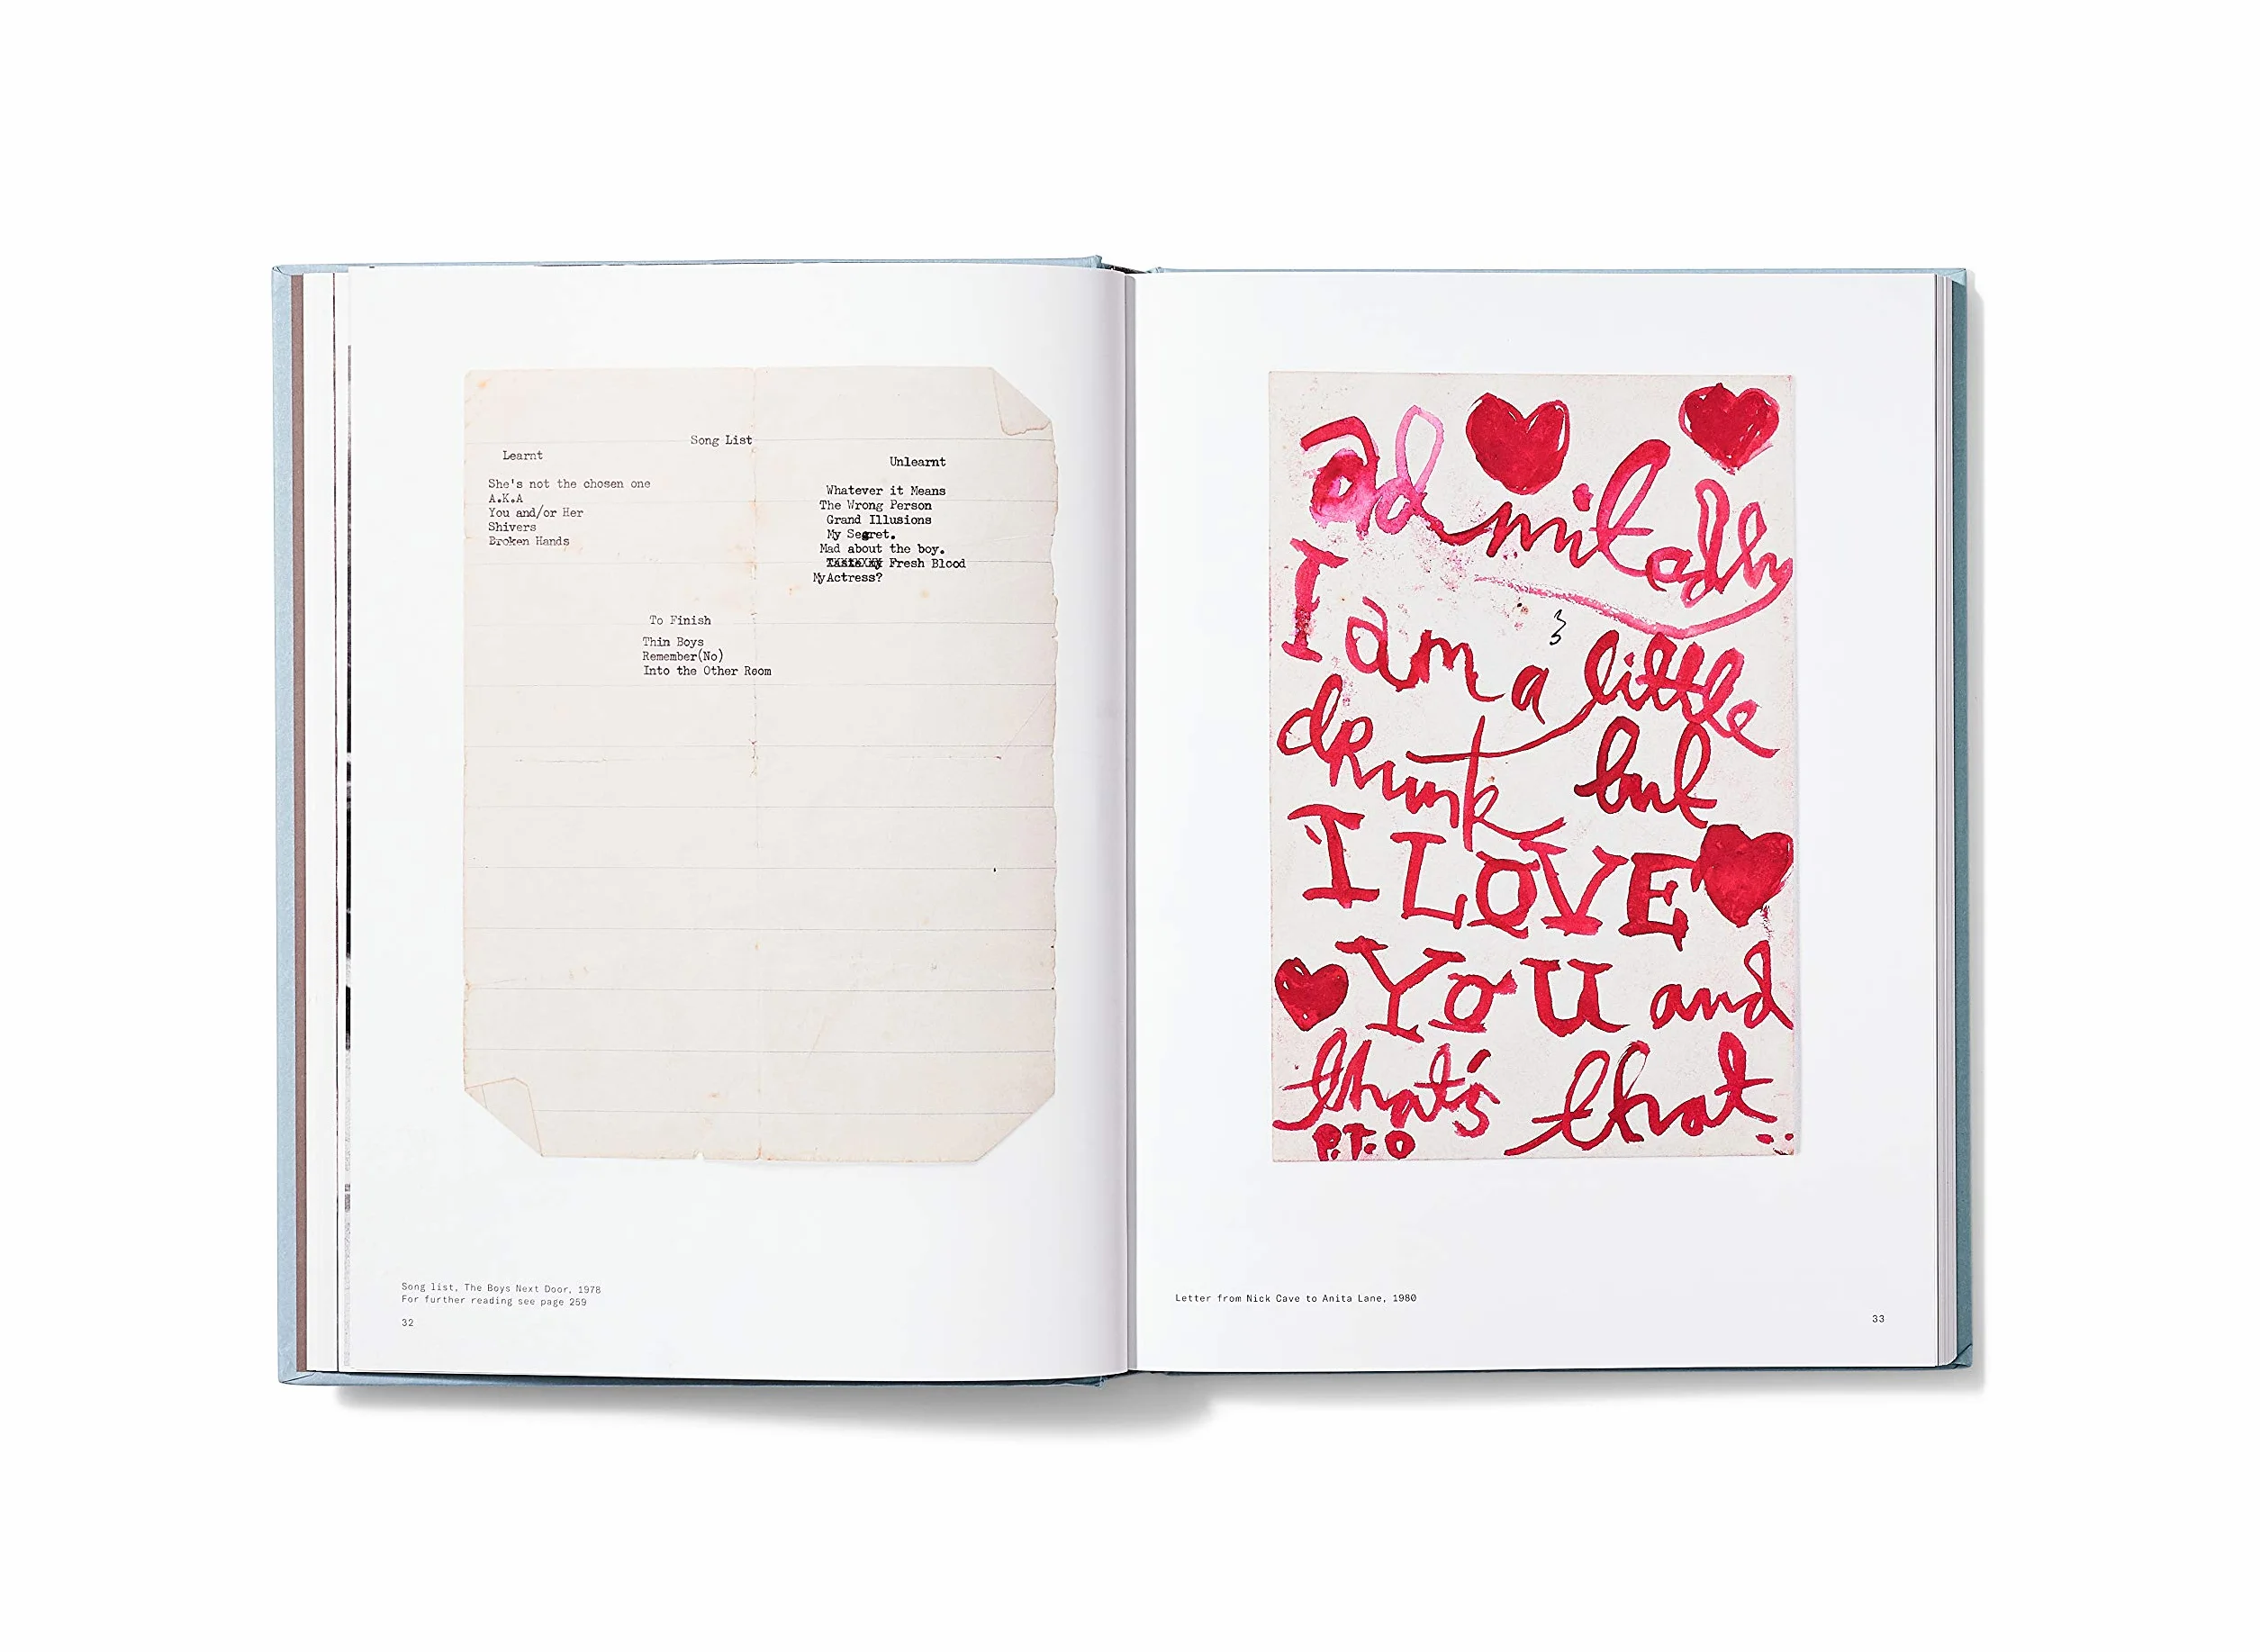 Song List
Learnt
She's not the chosen one
A.K.A
You and/or Her
Shivers
Broken Hands
Unlearnt
Whatever it Means
The Wrong Person
Grand Illusions
My Segret.
Mad about the boy.
Fresh Blood
My Actress?
To Finish
Thin Boys
Remember(No)
Into the Other Room
Song list, The Boys Next Door, 1978
For further reading see page 259
32
admitedly
I am a little
drunk but
I LOVE
YOU and
that's that
P.T.O
Letter from Nick Cave to Anita Lane, 1980
33